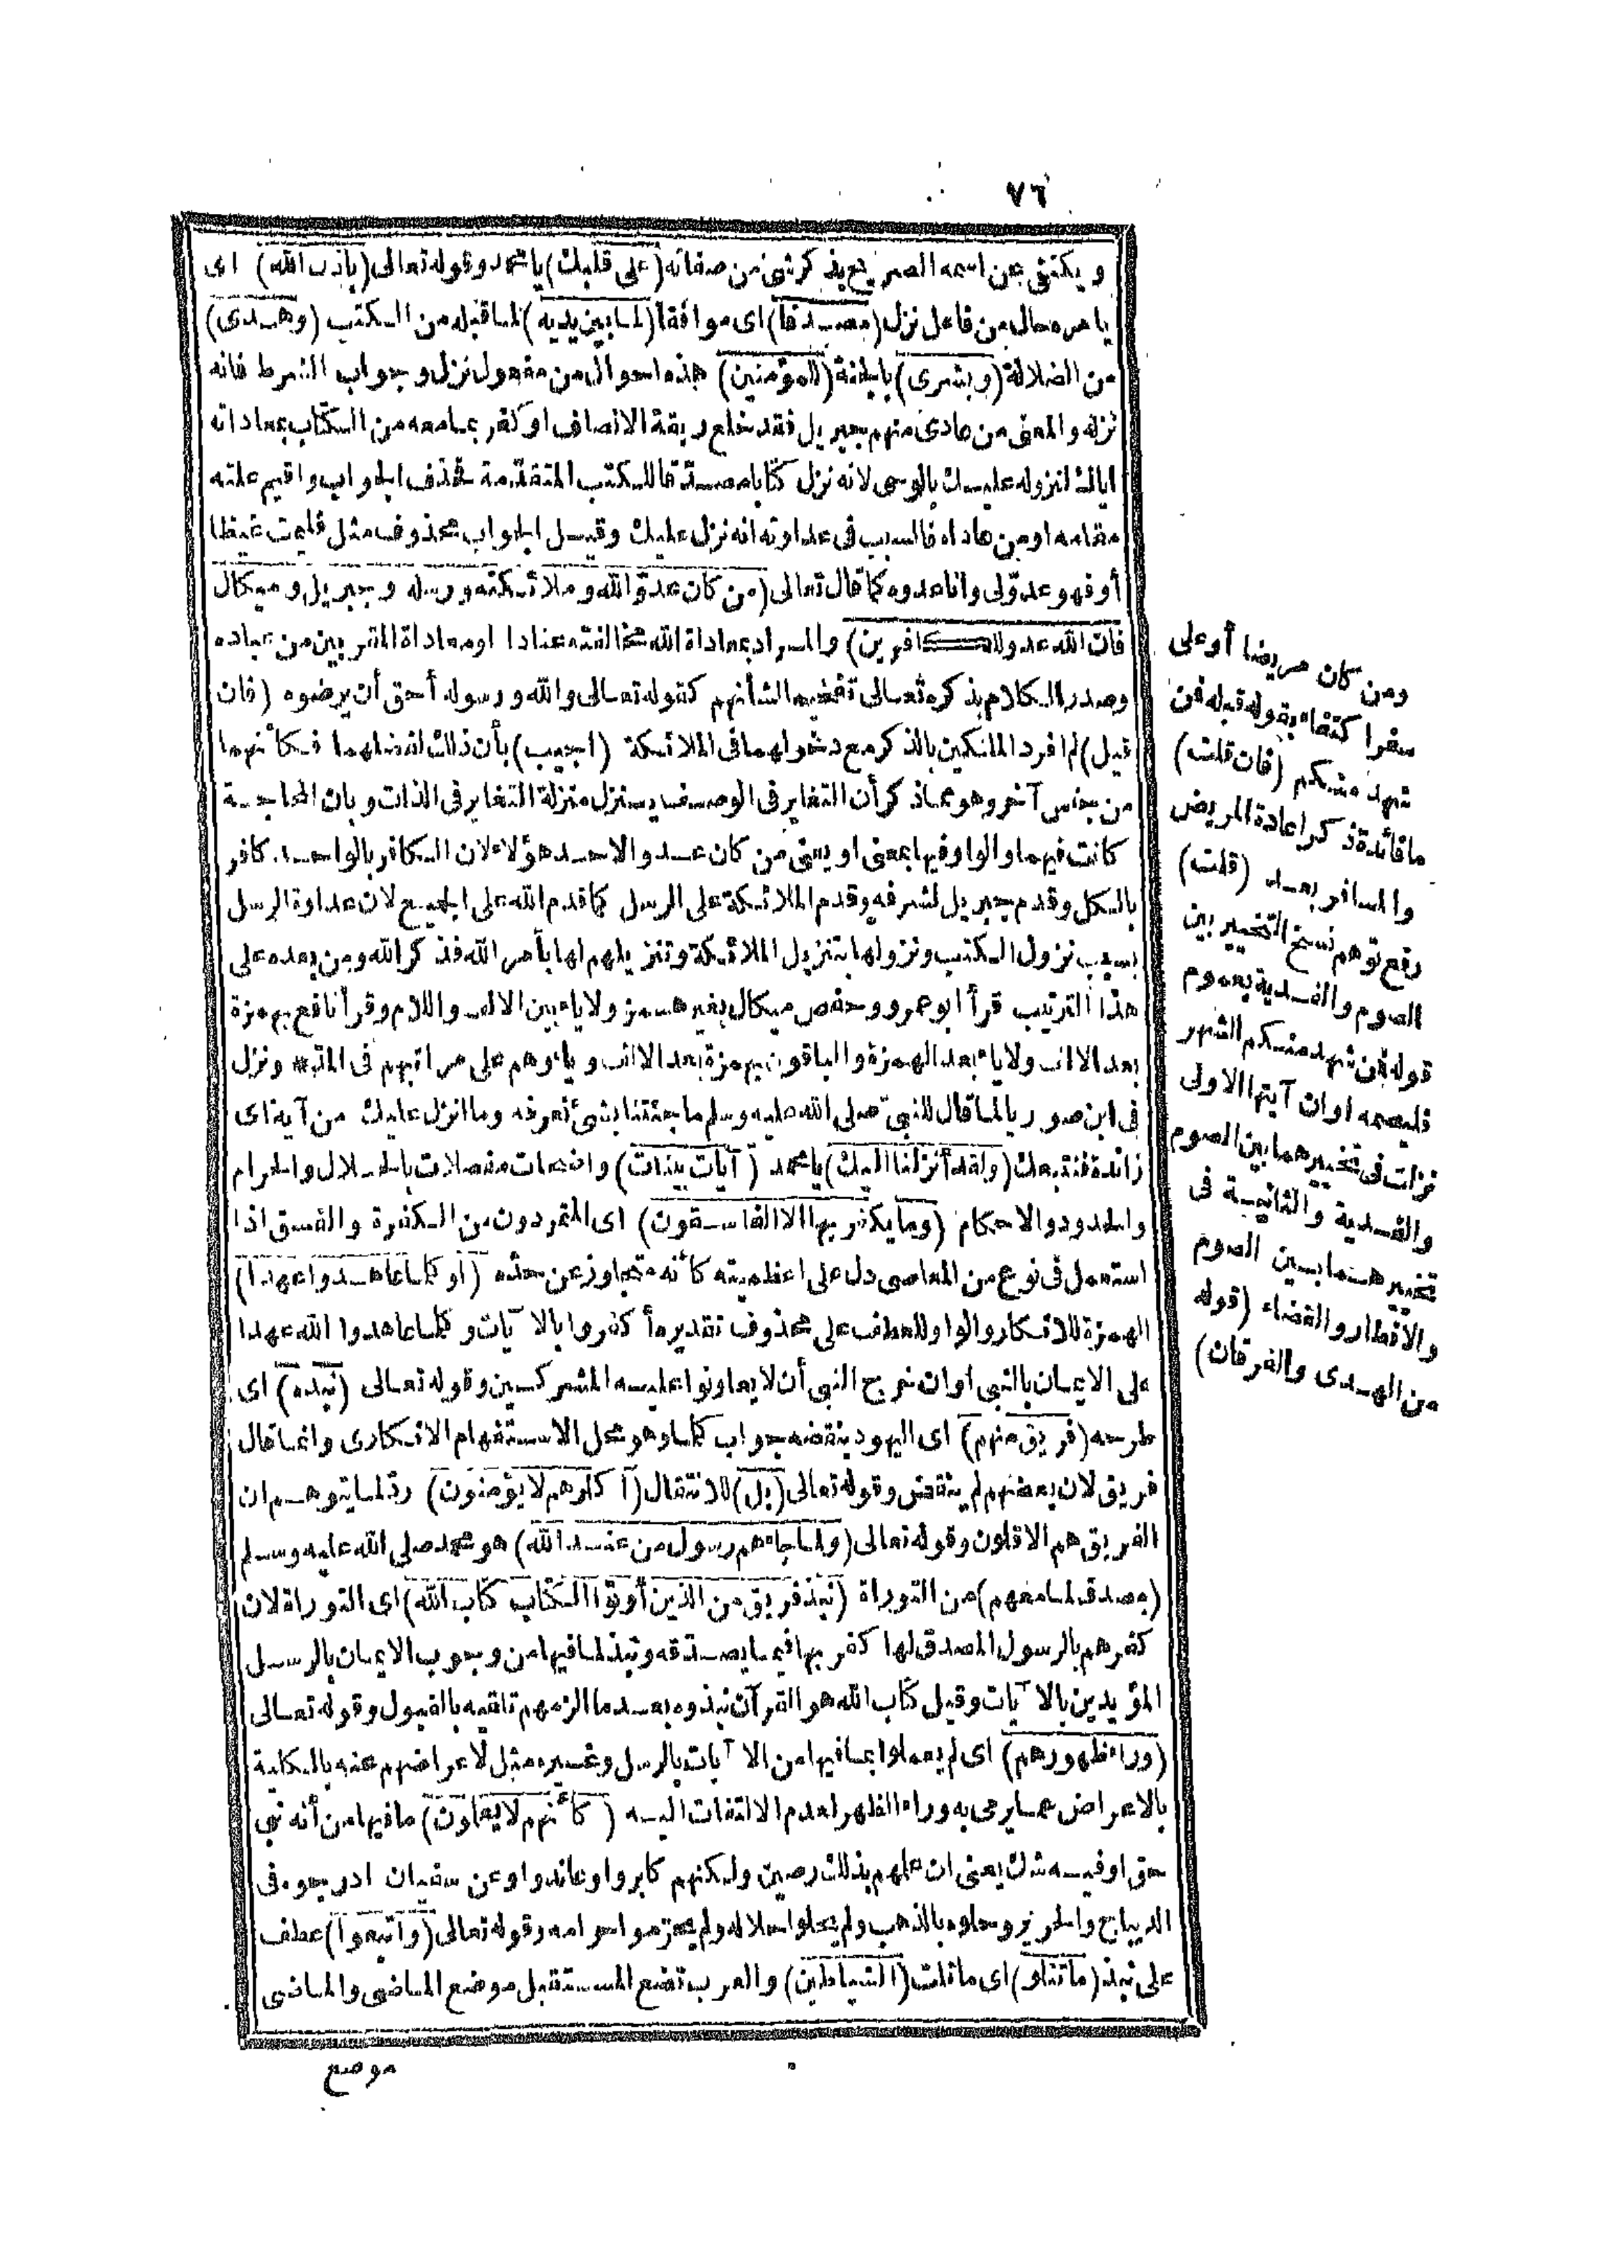 ٧٦
ويكتفى عن اسمه الصريح بذكر شئ من صفاته (على قلبك) يا محمد وقوله تعالى (باذن الله) اى
بامره حال من فاعل نزل (مصدقا) اى موافقا (لما بين يديه) لما قبله من الكتب (وهدى)
من الضلالة (وبشرى) بالجنة (للمؤمنين) هذه احوال من مفعول نزل وجواب الشرط فانه
نزله والمعنى من عادى منهم جبريل فقد خلع ربقة الانصاف او كفر بما معه من الكتاب بمعاداته
اياك لنزوله عليك بالوحى لانه نزل كتابا مصدّقا للكتب المتقدّمة فحذف الجواب واقيم علته
مقامه او من عاداه فالسبب فى عداوته انه نزل عليك وقيل الجواب محذوف مثل فليمت غيظا
أو فهو عدوّلى وانا عدوه كما قال تعالى (من كان عدوّا لله وملائكته ورسله وجبريل وميكال
فان الله عدو للكافرين) والمراد بمعاداة الله مخالفته عنادا او معاداة المقربين من عباده
وصدر الكلام بذكره تعالى تفخيما لشأنهم كقوله تعالى والله ورسوله أحق أن يرضوه (فان
قيل) لم افرد الملكين بالذكر مع دخولهما فى الملائكة (اجيب) بأن ذلك لفضلهما فكأنهما
من جنس آخر وهو مما ذكر أن التغاير فى الوصف ينزل منزلة التغاير فى الذات وبان المحاجة
كانت فيهما والواو فيها بمعنى او يعنى من كان عدوا لاحد هؤلاء لان الكافر بالواحد كافر
بالكل وقدم جبريل لشرفه وقدم الملائكة على الرسل كما قدم الله على الجميع لان عداوة الرسل
بسبب نزول الكتب ونزولها بتنزيل الملائكة وتنزيلهم لها بأمر الله فذكر الله ومن بعده على
هذا الترتيب قرأ ابو عمرو وحفص ميكال بغير همز ولا ياء بين الالف واللام وقرأ نافع بهمزة
بعد الالف ولا ياء بعد الهمزة والباقون بهمزة بعد الالف وياء وهم على مراتبهم فى المتبـ* ونزل
فى ابن صوريا لما قال للنبىّ صلى الله عليه وسلم ما جئتنا بشئ نعرفه وما انزل عليك من آية اى
زائدة فنتبعك (ولقد أنزلنا اليك) يا محمد (آيات بينات) واضحات مفصلات بالحلال والحرام
والحدود والاحكام (وما يكفر بها الا الفاسقون) اى المتمردون من الكفرة والفسق اذا
استعمل فى نوع من المعاصى دل على اعظميته كأنه متجاوز عن حدّه (او كلما عاهدوا عهدا)
الهمزة للانكار والواو للعطف على محذوف تقديره أكفروا بالآيات وكلما عاهدوا الله عهدا
على الايمان بالنبى او ان خرج النبى أن لا يعاونوا عليه المشركين وقوله تعالى (نبذه) اى
طرحه (فريق منهم) اى اليهود بنقضه جواب كلما وهو محل الاستفهام الانكارى وانما قال
فريق لان بعضهم لم ينقض وقوله تعالى (بل) للانتقال (أكثرهم لا يؤمنون) ردّ لما يتوهم ان
الفريق هم الاقلون وقوله تعالى (ولما جاءهم رسول من عند الله) هو محمد صلى الله عليه وسلم
(مصدق لما معهم) من التوراة (نبذ فريق من الذين أوتوا الكتاب كتاب الله) اى التوراة لان
كفرهم بالرسول المصدق لها كفر بها فيما يصدّقه ونبذ لما فيها من وجوب الايمان بالرسل
المؤيدين بالآيات وقيل كتاب الله هو القرآن نبذوه بعد ما الزمهم تلقيه بالقبول وقوله تعالى
(وراء ظهورهم) اى لم يعملوا بما فيها من الآيات بالرسل وغيره مثل لاعراضهم عنه بالكلية
بالاعراض عما يرمى به وراء الظهر لعدم الالتفات اليه (كأنهم لا يعلون) ما فيها من أنه نبى
حق او فيه شك يعنى ان علمهم بذلك رصين ولكنهم كابروا وعاندوا وعن سفيان ادرجوه فى
الديباج والحرير وحلوه بالذهب ولم يحلوا حلاله ولم يحرّموا حرامه وقوله تعالى (واتبعوا) عطف
على نبذ (ما تتلو) اى ما تلت (الشياطين) والعرب تضع المستقبل موضع الماضى والماضى
موضع
ومن كان مريضا أو على
سفرا كتفاء بقوله قبله فمن
شهد منكم (فان قلت)
ما فائدة ذكر اعادة المريض
والمسافر بعد (قلت)
رفع توهم نسخ التخيير بين
الصوم والفدية بعموم
قوله فمن شهد منكم الشهر
فليصمه او ان آيتها الاولى
نزلت فى تخييرهما بين الصوم
والفدية والثانية فى
تخييرهما بين الصوم
والافطار والقضاء (قوله
من الهدى والفرقان)